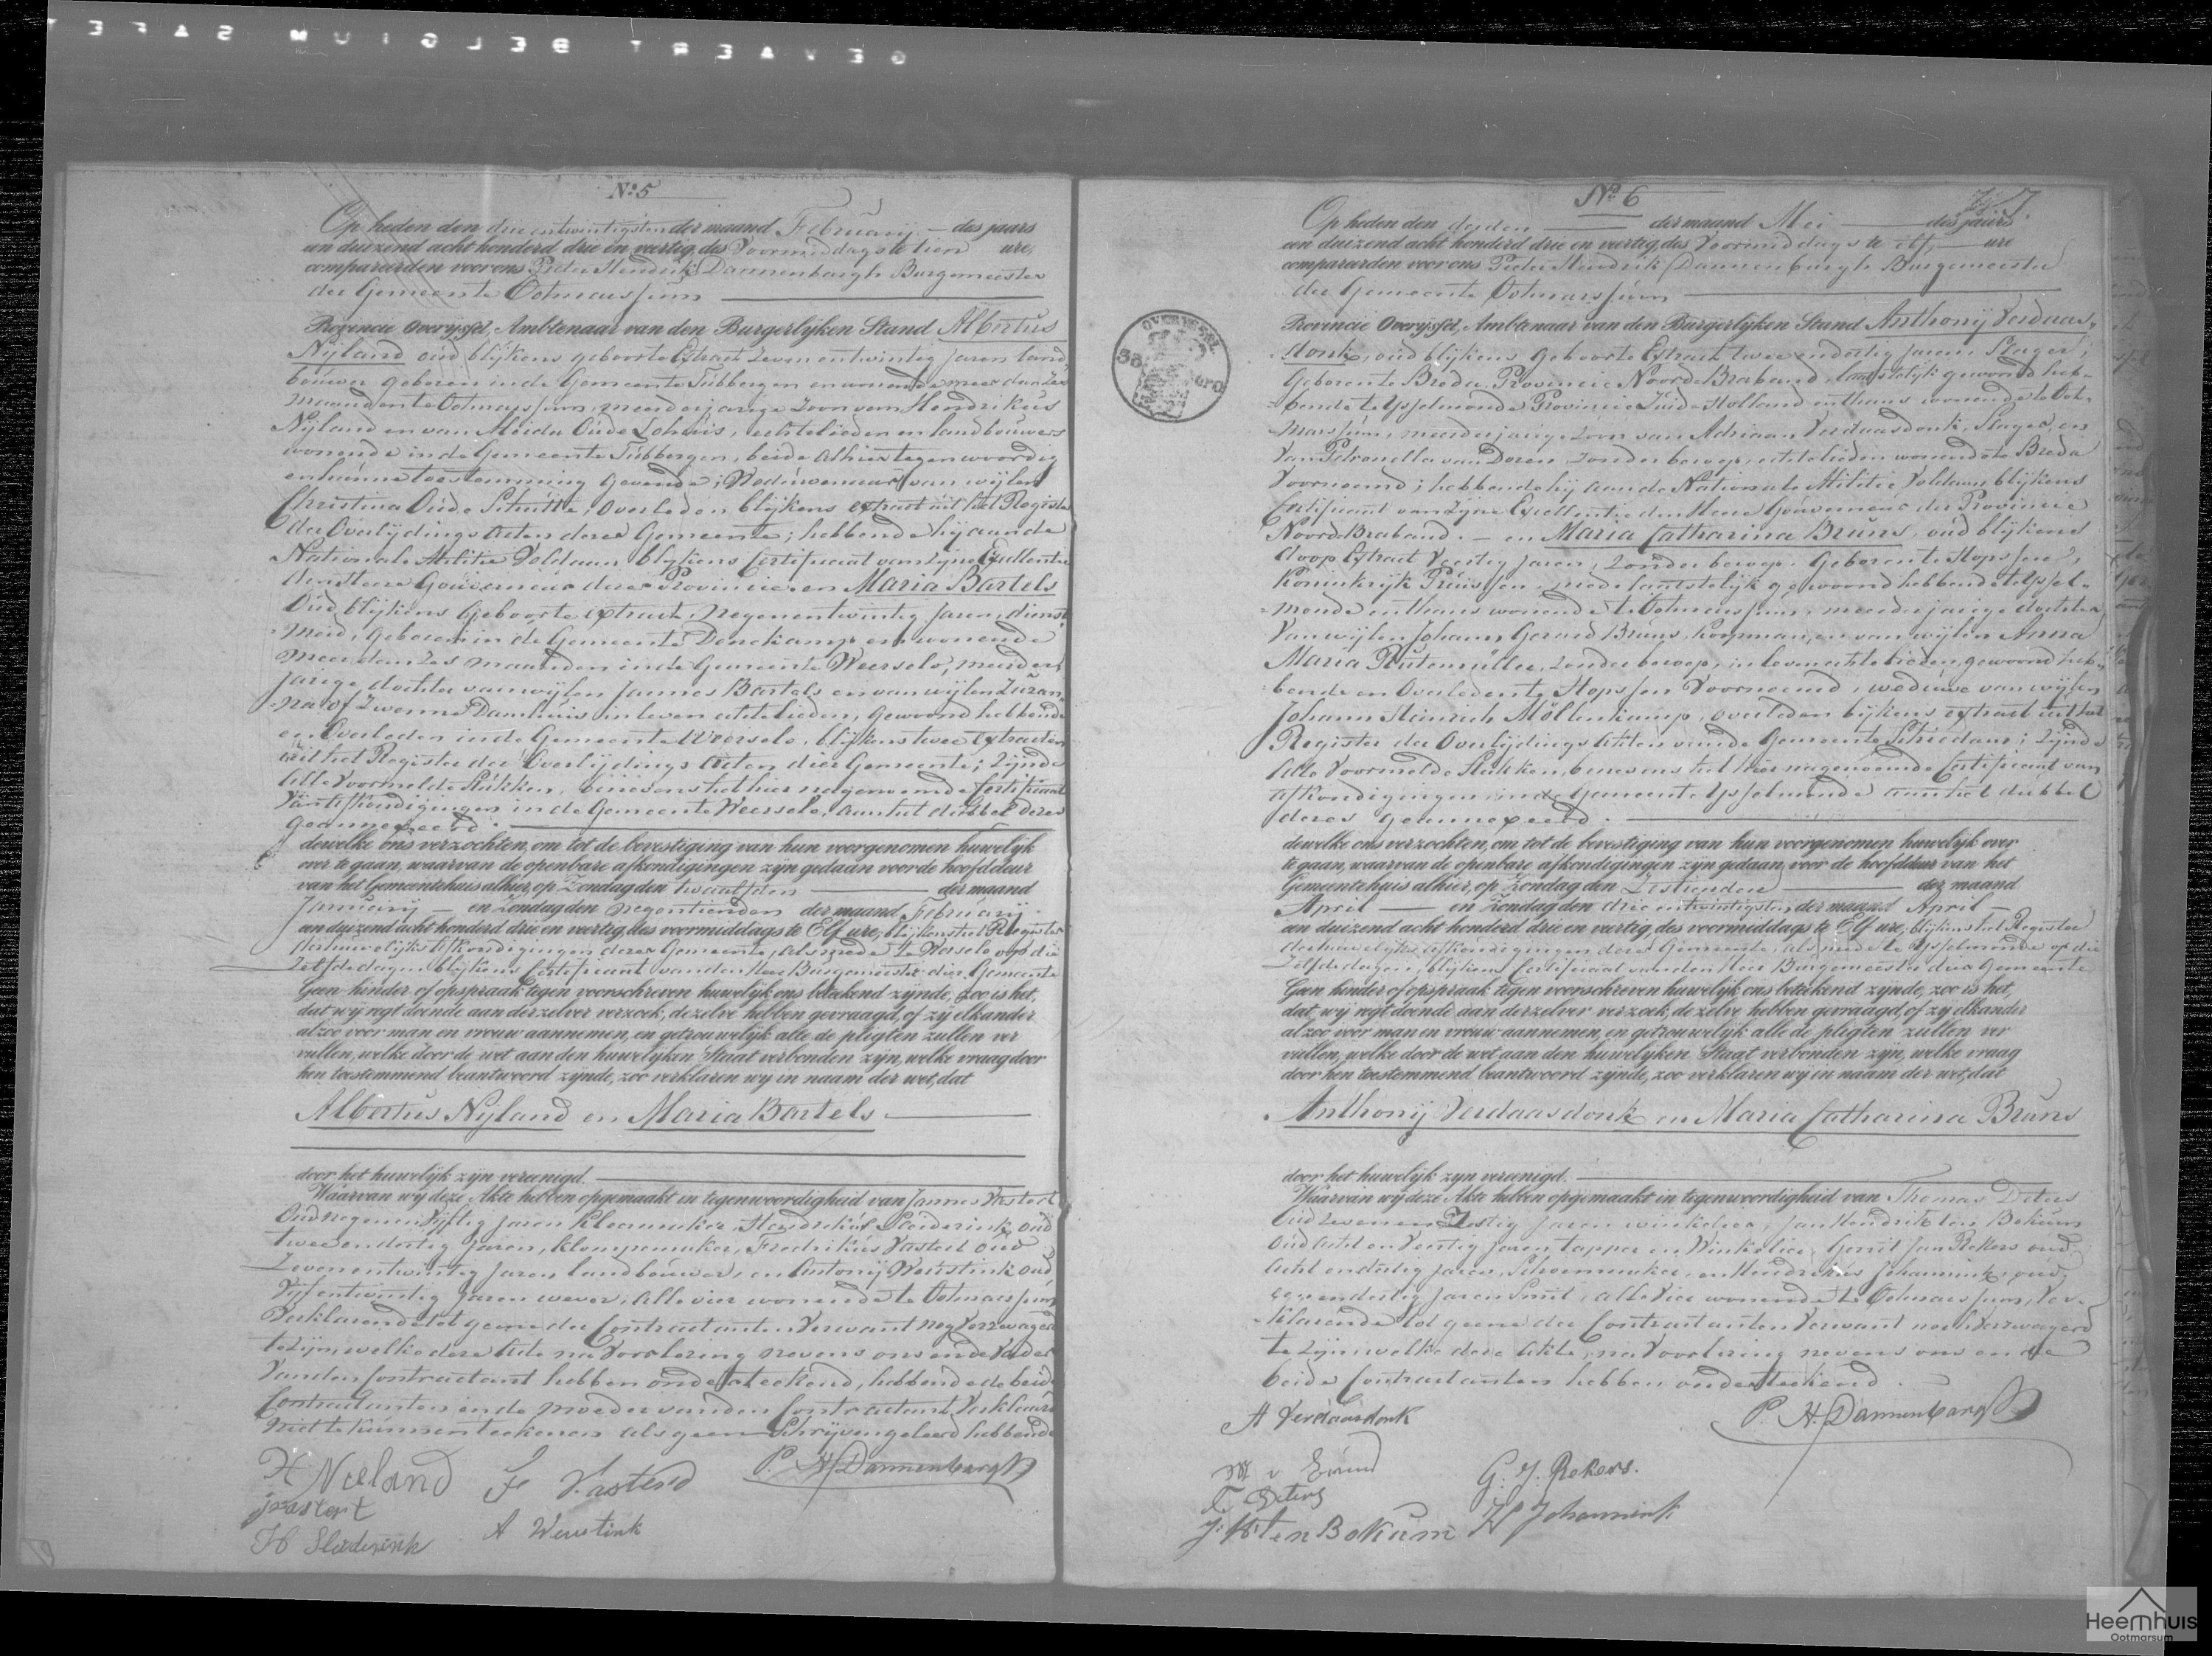 GEVAERT BELGIUM SAFE
No. 5
Op heden den drie entwintigsten der maand February des jaars
een duizend acht honderd drie en veertig, des Voormiddags te tien ure,
compareerden voor ons Pieter Hendrik Dannenbargh Burgemeester
der Gemeente Ootmarssum
Provincie Overijssel, Ambtenaar van den Burgerlyken Stand Albertus
Nijland oud blijkens geboorte Extract Zeven entwintig Jaren land
bouwer geboren in de Gemeente Tubbergen en wonende meer dan Zes
maanden te Ootmarssum, meerderjarige Zoon van Hendrikus
Nijland en van Aleida Oude Lohuis, echtelieden en landbouwers
wonende in de Gemeente Tubbergen, beide alhier tegenwoordig
en hunne toestemming gevende; Weduwenaar van wijlen
Christina Oude overleden blijkens extract uit het Register
der Overlijdings Acten dezer Gemeente; hebbende hij aan de
Nationale Militie Voldaan blijkens Certificaat van Zijne Excellentie
den Heere Gouverneur dezer Provincie en Maria Bartels
Oud blijkens Geboorte extract, Negenentwintig Jaren, dienst
meid, Geboren in de Gemeente Denekamp en wonende
meer dan Zes maanden in de Gemeente Weerselo, meerder
jarige dochter van wijlen Jannes Bartels en van wijlen Zuzan
na of Zwenne Damhuis in leven echtelieden, gewoond hebbende
en Overleden in de Gemeente Weerselo, blijkens twee Extracten
uit het Register der Overlijdings acten dier Gemeente; Zijnde
alle Voormelde Stukken, benevens het hier nagenoemde Certificaat
van afkondigingen in de Gemeente Weerselo, aan het dubbel dezes
geannexeerd.
dewelke ons verzochten, om tot de bevestiging van hun voorgenomen huwelijk
over te gaan, waarvan de openbare afkondigingen zyn gedaan voor de hoofddeur
van het Gemeentehuis alhier, op Zondag den twaalfden der maand
en Zondag den negentienden der maand February
een duizend acht honderd drie en veertig, des voormiddags te Elf ure, blijkens het Register
der huwelijks afkondigingen dezer Gemeente, als mede te Weerselo op die
Zelfde dagen blijkens Certificaat van den Heer Burgemeester dier Gemeente
Geen hinder of opspraak tegen voorschreven huwelijk ons bekend zijnde, zoo is het,
dat wy regt doende aan derzelver verzoek, dezelve hebben gevraagd, of zy elkander
alzoo voor man en vrouw aannemen, en getrouwelyk alle de pligten zullen ver
vullen, welke door de wet aan den huwelyken Staat verbonden zyn, welke vraag door
hen toestemmend beantwoord zynde, zoo verklaren wy in naam der wet, dat
Albertus Nijland en Maria Bartels
door het huwelijk zyn vereenigd.
Waarvan wij deze Akte hebben opgemaakt in tegenwoordigheid van Jannes Vastert
Oud negenenvijftig Jaren Kleermaker, Hendrikus oud
twee en dertig Jaren, klompemaker, Fredrikus Vastert oud
Zevenentwintig Jaren landbouwer, en Antonij Weustink oud
Vijfentwintig Jaren wever, alle vier wonende te Ootmarssum
Verklarende tot geene der Contractanten Verwant nog Verzwagerd
te zijn, welke deze Acte na Voorlezing nevens ons en de Vader
van den Contractant hebben onderteekend, hebbende de beide
Contractanten en de moeder van den Contractant Verklaard
niet te kunnen teekenen als geen Schrijven geleerd hebbende
H Nieland F Vasterd P. H. Dannenbargh
J Vastert
H A Weustink
No. 6
7.
Op heden den derden der maand Mei des jaars
een duizend acht honderd drie en veertig, des Voormiddags te elf ure
compareerden voor ons Pieter Hendrik Dannenbargh Burgemeester
der Gemeente Ootmarssum
OVERYSSEL
Provincie Overijssel, Ambtenaar van den Burgerlyken Stand Anthonij Verdaas-
donk, oud blijkens Geboorte Extract twee en dertig Jaren, Slager,
Geboren te Breda, Provincie Noord Braband, laatstelijk gewoond heb-
bende te Ysselmonde Provincie Zuid-Holland en thans wonende te Oot-
marssum, meerderjarige Zoon van Adriaan Verdaasdonk, Slager, en
van Petronella van Doren Zonder beroep, echtelieden wonende te Breda
Voornoemd; hebbende hij aan de Nationale Militie Voldaan blijkens
Certificaat van Zijne Excellentie den Heere Gouverneur der Provincie
Noord-Braband. — en Maria Catharina Bruns, oud blijkens
doop Extract Veertig Jaren, Zonder beroep, Geboren te Hopsten,
Koninkrijk Pruissen, mede laatstelijk gewoond hebbende te Yssel-
monde en thans wonende te Ootmarssum, meerderjarige dochter
Van wijlen Johann Gerard Bruns, Koopman, en van wijlen Anna
Maria Zonder beroep, in leven echtelieden, gewoond heb-
bende en Overleden te Hopsten Voornoemd, weduwe van wijlen
Johann Heinrich Möllenkamp, overleden blijkens extract uit het
Register der Overlijdings Akten van de Gemeente Schiedam; Zijnde
alle Voormelde Stukken, benevens het hier nagenoemde Certificaat van
afkondigingen in de Gemeente Ysselmonde aan het dubbel
dezes geannexeerd.
dewelke ons verzochten, om tot de bevestiging van hun voorgenomen huwelyk over
te gaan, waarvan de openbare afkondigingen zyn gedaan, voor de hoofddeur van het
Gemeentehuis alhier, op Zondag den Zestienden der maand
April en Zondag den drie entwintigsten der maand April
een duizend acht honderd drie en veertig, des voormiddags te Elf ure, blijkens het Register
der huwelijks afkondigingen dezer Gemeente, als mede te Ysselmonde op die
Zelfde dagen, blijkens Certificaat van den Heer Burgemeester dier Gemeente
Geen hinder of opspraak tegen voorschreven huwelyk ons bekend zynde, zoo is het,
dat wij regt doende aan derzelver verzoek, dezelve hebben gevraagd, of zy elkander
alzoo voor man en vrouw aannemen, en getrouwelyk alle de pligten zullen ver
vullen, welke door de wet aan den huwelyken Staat verbonden zyn, welke vraag
door hen toestemmend beantwoord zynde, zoo verklaren wij in naam der wet, dat
Anthonij Verdaasdonk en Maria Catharina Bruns
door het huwelyk zyn vereenigd.
Waarvan wij deze Akte hebben opgemaakt in tegenwoordigheid van Thomas Deters
Oud Zevenen Zestig Jaren winkelier, Jan Hendrik ten Bokum
Oud acht en Veertig Jaren tapper en Winkelier, Gerrit Jan Rekers oud
acht en dertig Jaren, Schoenmaker, en Hendrikus Johannink, oud
en dertig Jaren Smit, alle Vier wonende te Ootmarssum, Ver-
klarende tot geene der Contractanten Verwant noch Verzwagerd
te zijn, welke deze Akte, na Voorlezing nevens ons en de
beide Contractanten hebben onderteekend.
A Verdaasdonk P. H. Dannenbargh
G. J. Rekers.
T Deters
J: H: ten Bokum H Johannink
Heemhuis
Ootmarsum